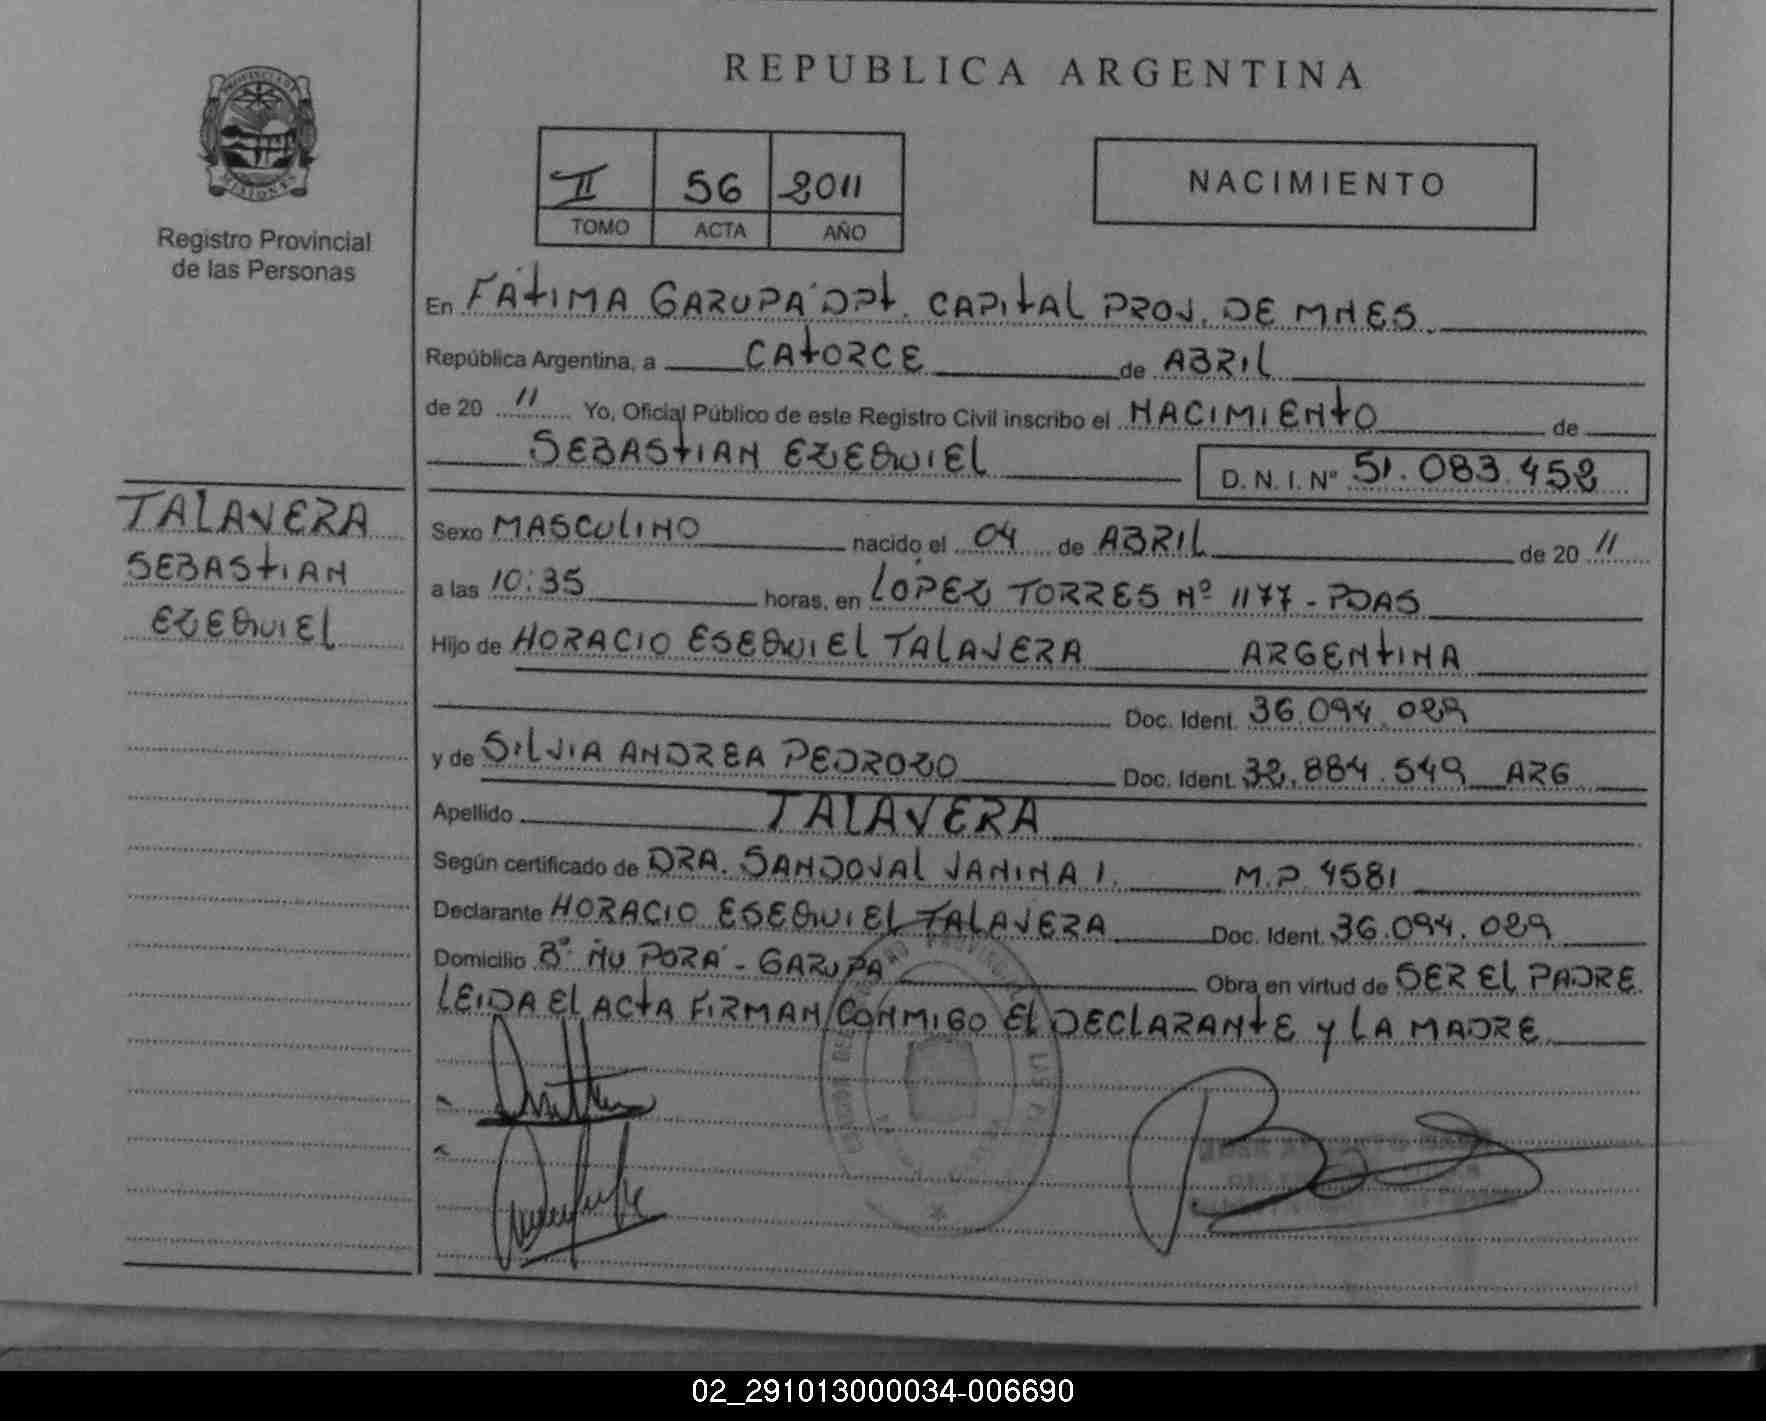 REPUBLICA ARGENTINA
PROVINCIA DE
MISIONES
Registro Provincial
de las Personas
II 56 2011
TOMO ACTA AÑO
NACIMIENTO
En FÁTIMA GARUPA' DPt. CAPITAL PROV. DE MNES.
República Argentina, a CATORCE de ABRIL
de 20 11 Yo, Oficial Público de este Registro Civil inscribo el NACIMIENTO de
SEBASTIAN EZEQUIEL D. N. I. Nº 51.083.452
TALAVERA
SEBASTIAN
EZEQUIEL
Sexo MASCULINO nacido el 04 de ABRIL de 20 11
a las 10:35 horas, en LOPEZ TORRES Nº 1177 - PDAS
Hijo de HORACIO ESEQUIEL TALAVERA ARGENTINA
Doc. Ident. 36.094.029
y de SILVIA ANDREA PEDROZO Doc. Ident. 32.884.549 ARG
Apellido TALAVERA
Según certificado de DRA. SANDOVAL VANINA I. M.P. 4581
Declarante HORACIO ESEQUIEL TALAVERA Doc. Ident. 36.094.029
Domicilio Bº ÑU PORA' - GARUPA Obra en virtud de SER EL PADRE.
LEIDA EL ACTA FIRMAN CONMIGO EL DECLARANTE Y LA MADRE
02_291013000034-006690